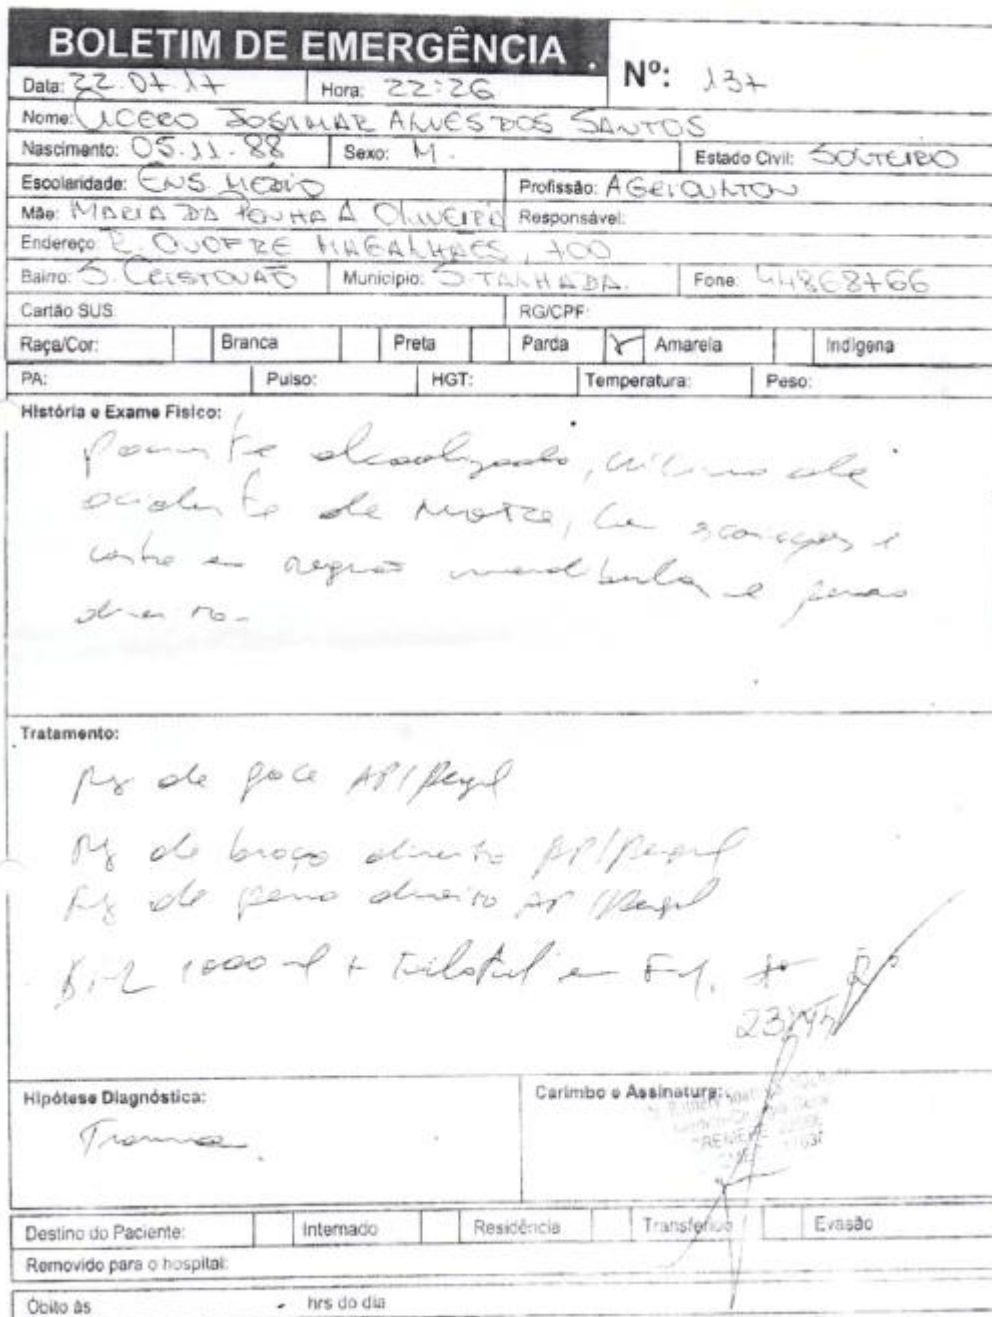 BOLETIM DE EMERGÊNCIA
Nº: 137
Data: 22.07.17 Hora: 22:26
Nome: CICERO JOSIMAR ALVES DOS SANTOS
Nascimento: 05.11.88 Sexo: M. Estado Civil: SOLTEIRO
Escolaridade: ENS MEDIO Profissão: AGRICULTOR
Mãe: MARIA DA PENHA A OLIVEIRA Responsável:
Endereço: R. ONOFRE MAGALHAES, 700
Bairro: S. CRISTOVAO Município: S. TALHADA. Fone:
Cartão SUS: RG/CPF:
Raça/Cor: Branca Preta Parda Amarela Indígena
PA: Pulso: HGT: Temperatura: Peso:
História e Exame Físico:
Paciente alcoolizado, vítima de
acidente de moto, escoriações e
corte em região mandibular e perna
direita.
Tratamento:
Rx de face AP/Perfil
Rx de braço direito AP/Perfil
Rx de perna direito AP/Perfil
1000 ml + Tilatil
Hipótese Diagnóstica: Carimbo e Assinatura:
Trauma
Destino do Paciente: Internado Residência Transferido Evasão
Removido para o hospital:
Óbito às hrs do dia